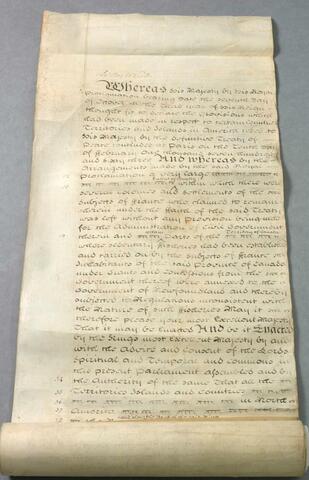 Whereas his Majesty by his Royal
Proclamation bearing Date the seventh Day
of October in the Third Year of his Reign
thought fit to declare the Provisions which
had been made in respect to certain Countries
Territories and Islands in America ceded to
his Majesty by the definitive Treaty of
Peace concluded at Paris on the Tenth Day
of February One thousand seven hundred
and sixty three And whereas by the
Arrangements made by the said Royal
Proclamation a very large
within which there were
several Colonies and Settlements of the
Subjects of France who claimed to remain
therein under the Faith of the said Treaty
was left without any Provision being made
for the Administration of Civil Government
therein and Parts of the
where sedentary Fisheries had been established
and carried on by the Subjects of France
Inhabitants of the said Province of Canada
under Grants and Concessions from the
Government thereof were annexed to the
Government of Newfoundland and thereby
subjected to Regulations inconsistent with
the Nature of such Fisheries May it
therefore please your most Excellent Majesty
That it may be Enacted And be it Enacted
by the Kings most Excellent Majesty by and
with the Advice and Consent of the Lords
Spiritual and Temporal and Commons in
this present Parliament assembled and by
the Authority of the same That all the
Territories Islands and Countries
in North
America